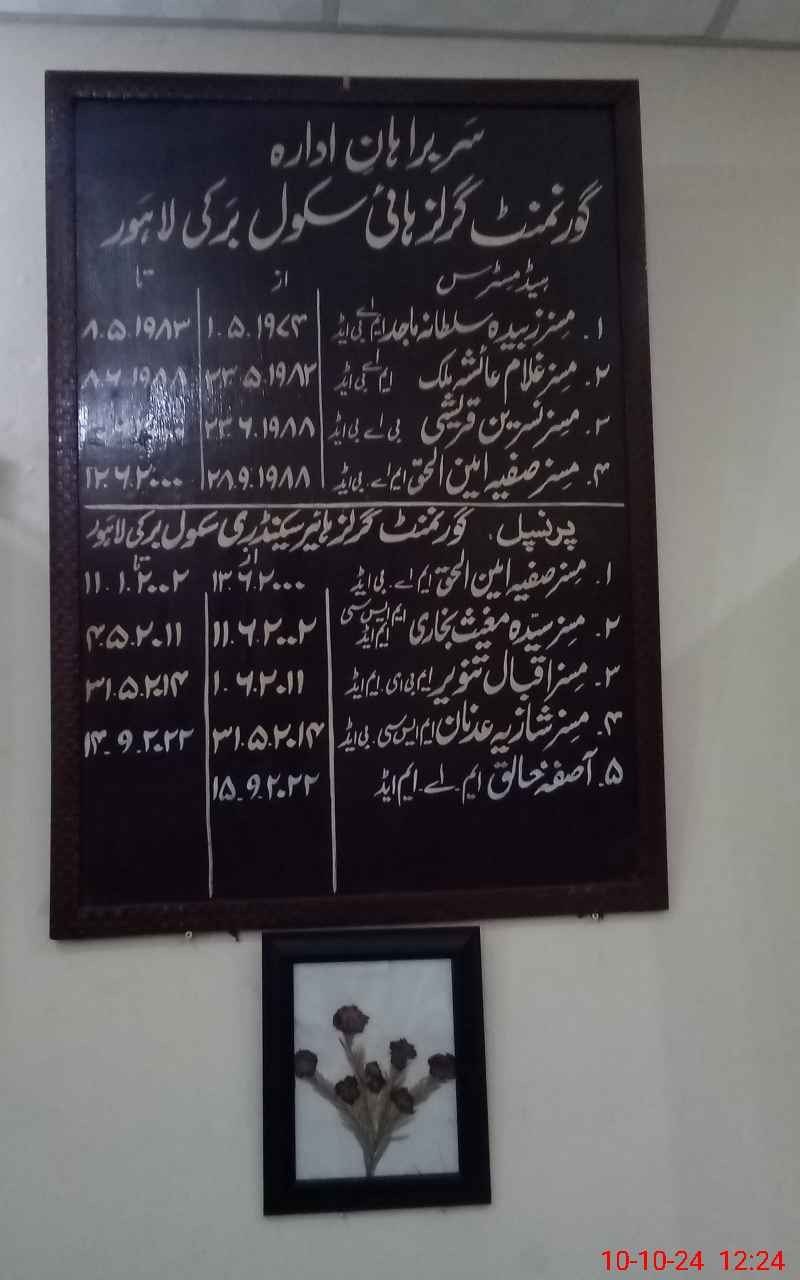 سربراہانِ ادارہ
گورنمنٹ گرلز ہائی سکول بَرکی لاہَور
ہیڈ مسٹرس از تا
۱. مسز زبیدہ سلطانہ ماجد ایم اے بی ایڈ ۱.۵.۱۹۷۴ ۸.۵.۱۹۸۳
۲. مسز غلام عائشہ ملک ایم اے بی ایڈ ۲۳.۵.۱۹۸۲ ۸.۶.۱۹۸۸
۲. مسز نسرین قریشی بی اے بی ایڈ ۲۳.۶.۱۹۸۸
۴. مسز صفیہ امین الحق ایم اے. بی ایڈ ۲۸.۹.۱۹۸۸ ۱۲.۶.۲۰۰۰
پرنسپل. گورنمنٹ گرلز ہائیر سیکنڈری سکول برکی لاہور
از تا
۱. مسز صفیہ امین الحق ایم اے. بی ایڈ ۱۳.۶.۲۰۰۰ ۱۱.۱.۲۰۰۲
۲. مسز سیّدہ مغیث بخاری ایم ایس سی ایم ایڈ ۱۱.۶.۲۰۰۲ ۴.۵.۲۰۱۱
۳. مسز اقبال تنویر ایم بی ای. ایم ایڈ ۱.۶.۲۰۱۱ ۳۱.۵.۲۰۱۴
۴. مسز شازیہ عدنان ایم ایس سی. بی ایڈ ۳۱.۵.۲۰۱۴ ۱۴.۹.۲۰۲۲
۵. آصفہ خالق ایم-اے-ایم ایڈ ۱۵.۹.۲۰۲۲
10-10-24 12:24